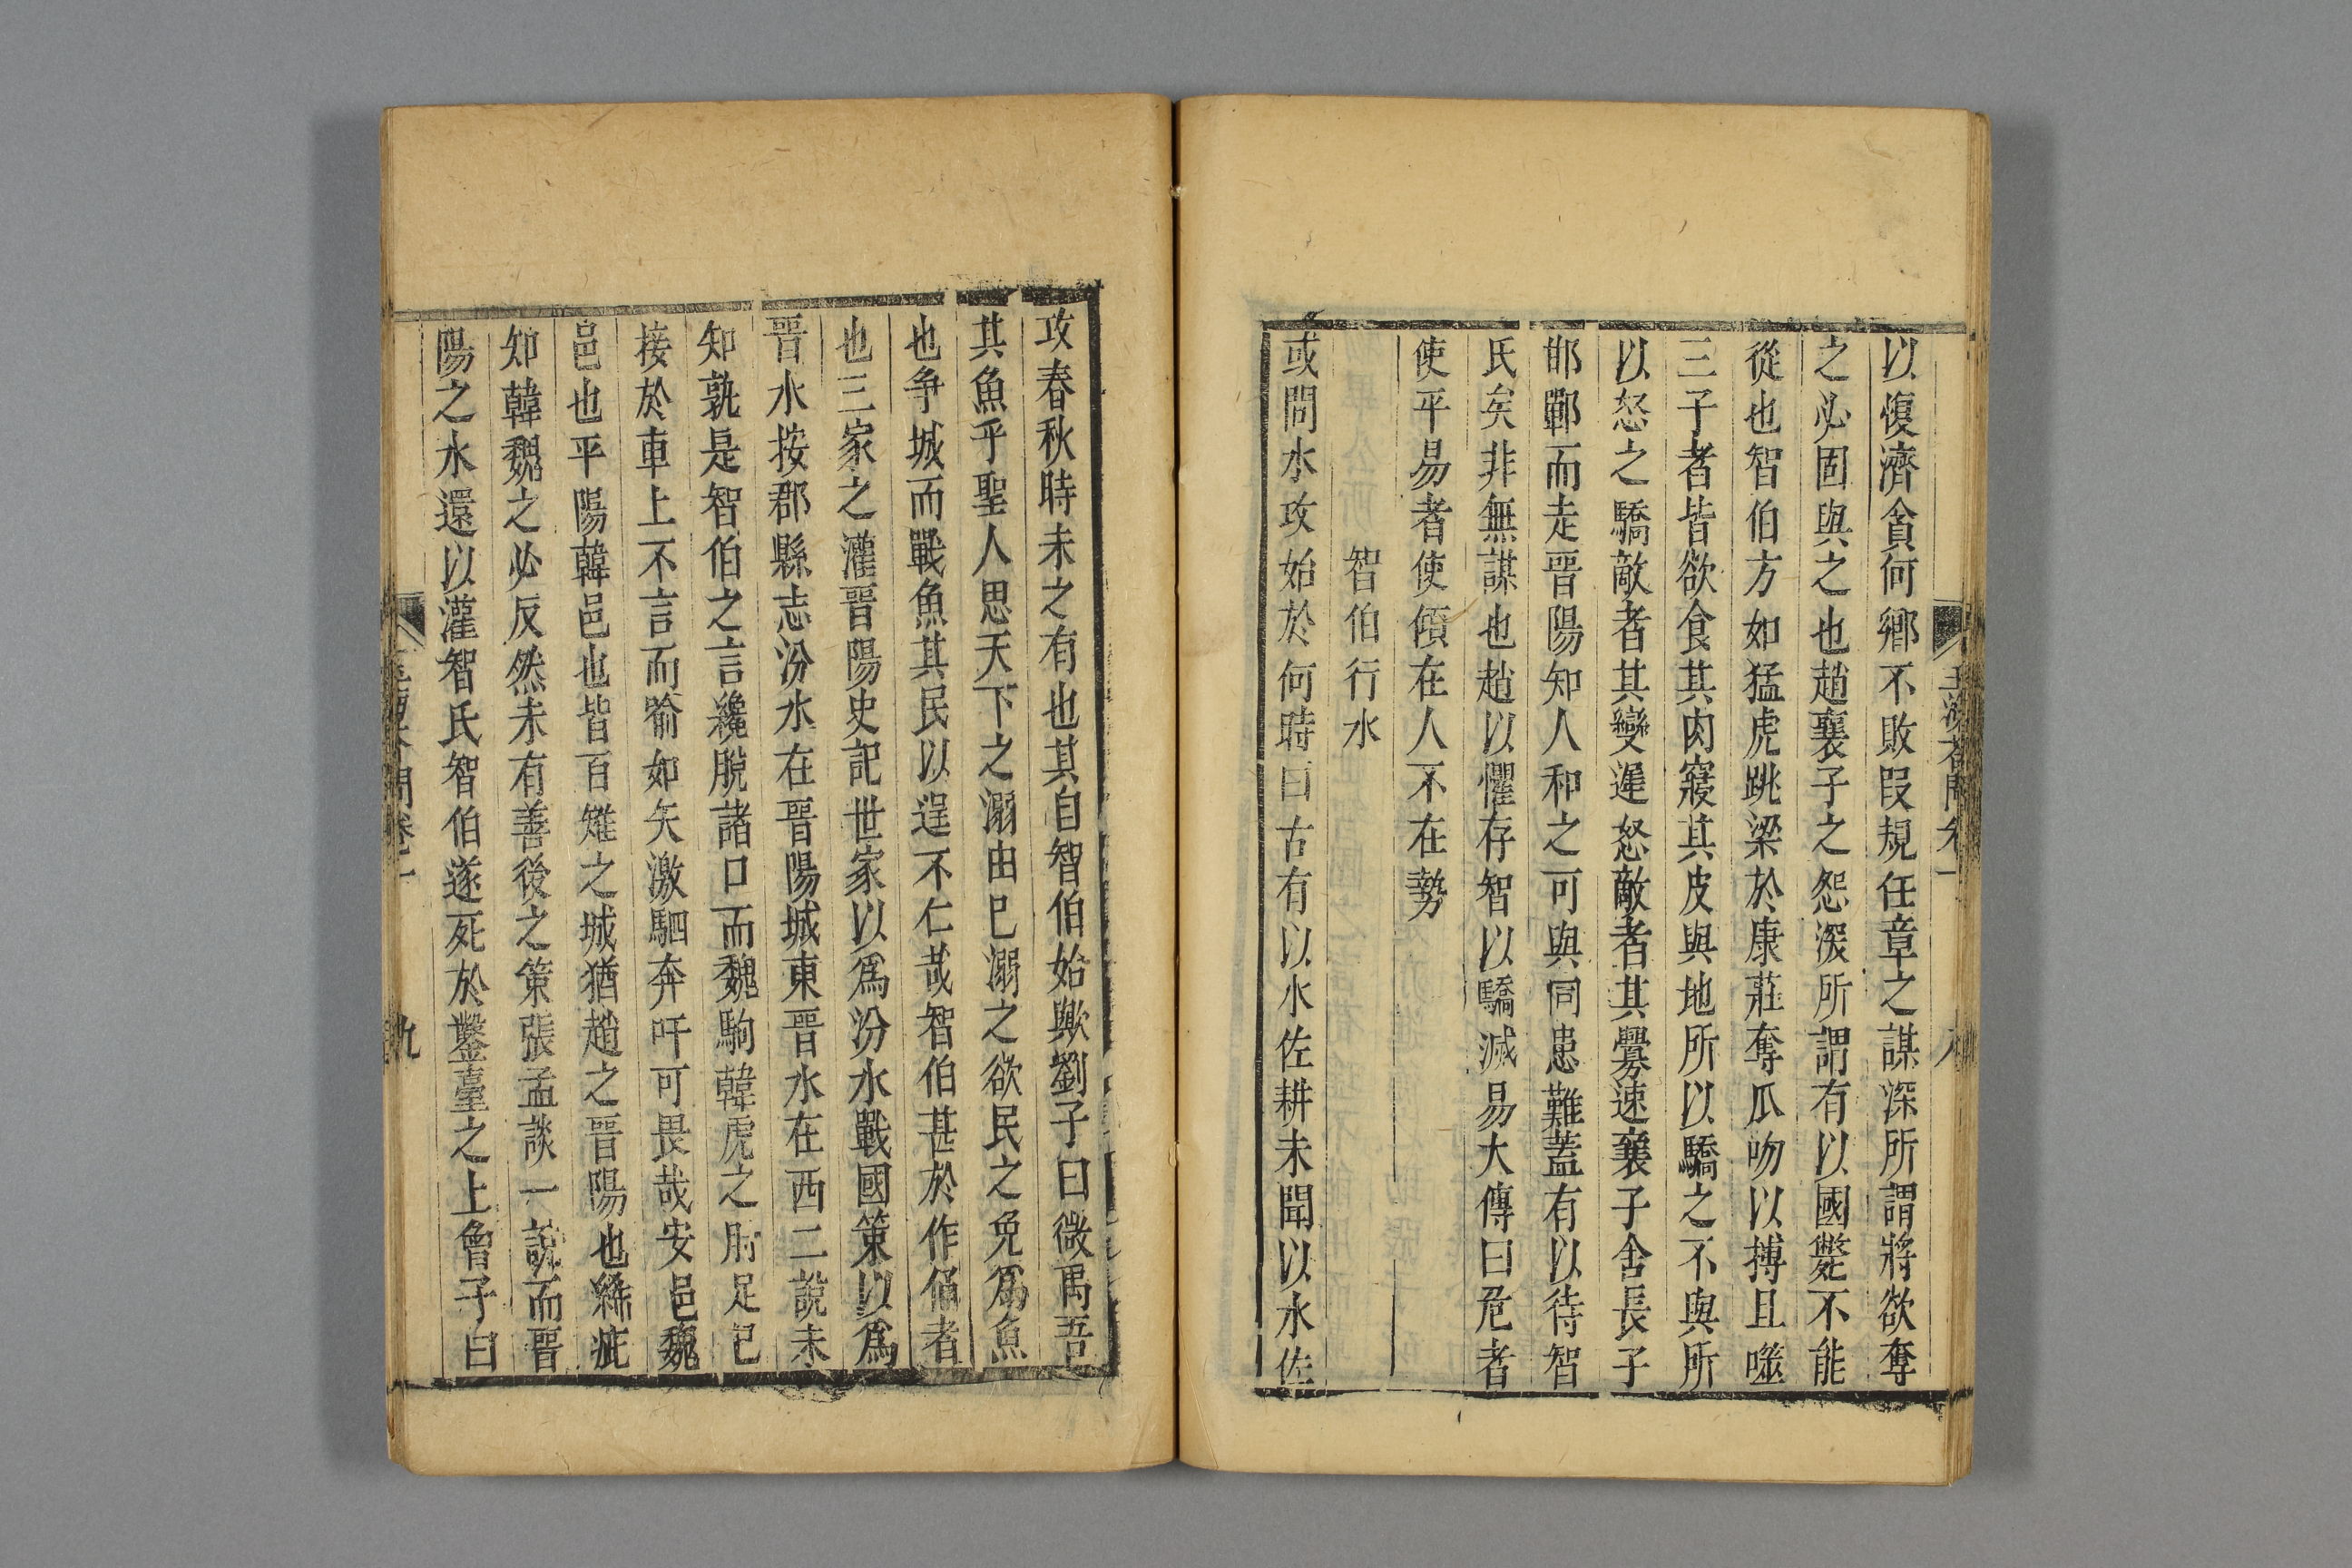 以愎濟貪何鄉不敗段規任章之謀深所謂將欲奪
之必固與之也趙襄子之怨深所謂有以國斃不能
從也智伯方如猛虎跳梁於康莊奪爪吻以搏且噬
三子者皆欲食其肉寢其皮與地所以驕之不與所
以怒之驕敵者其變遲怒敵者其釁速襄子舍長子
邯鄲而走晉陽知人和之可與同患難蓋有以待智
氏矣非無謀也趙以懼存智以驕滅易大傳曰危者
使平易者使傾在人不在勢
智伯行水
或問水攻始於何時曰古有以水佐耕未聞以水佐
攻春秋時未之有也其自智伯始歟劉子曰微禹吾
其魚乎聖人思天下之溺由己溺之欲民之免爲魚
也爭城而戰魚其民以逞不仁哉智伯甚於作俑者
也三家之灌晉陽史記世家以爲汾水戰國策以爲
晉水按郡縣志汾水在晉陽城東晉水在西二說未
知孰是智伯之言纔脫諸口而魏駒韓虎之肘足已
接於車上不言而喻如矢激駟奔吁可畏哉安邑魏
邑也平陽韓邑也皆百雉之城猶趙之晉陽也絺疵
知韓魏之必反然未有善後之策張孟談一說而晉
陽之水還以灌智氏智伯遂死於鑿臺之上曾子曰
九